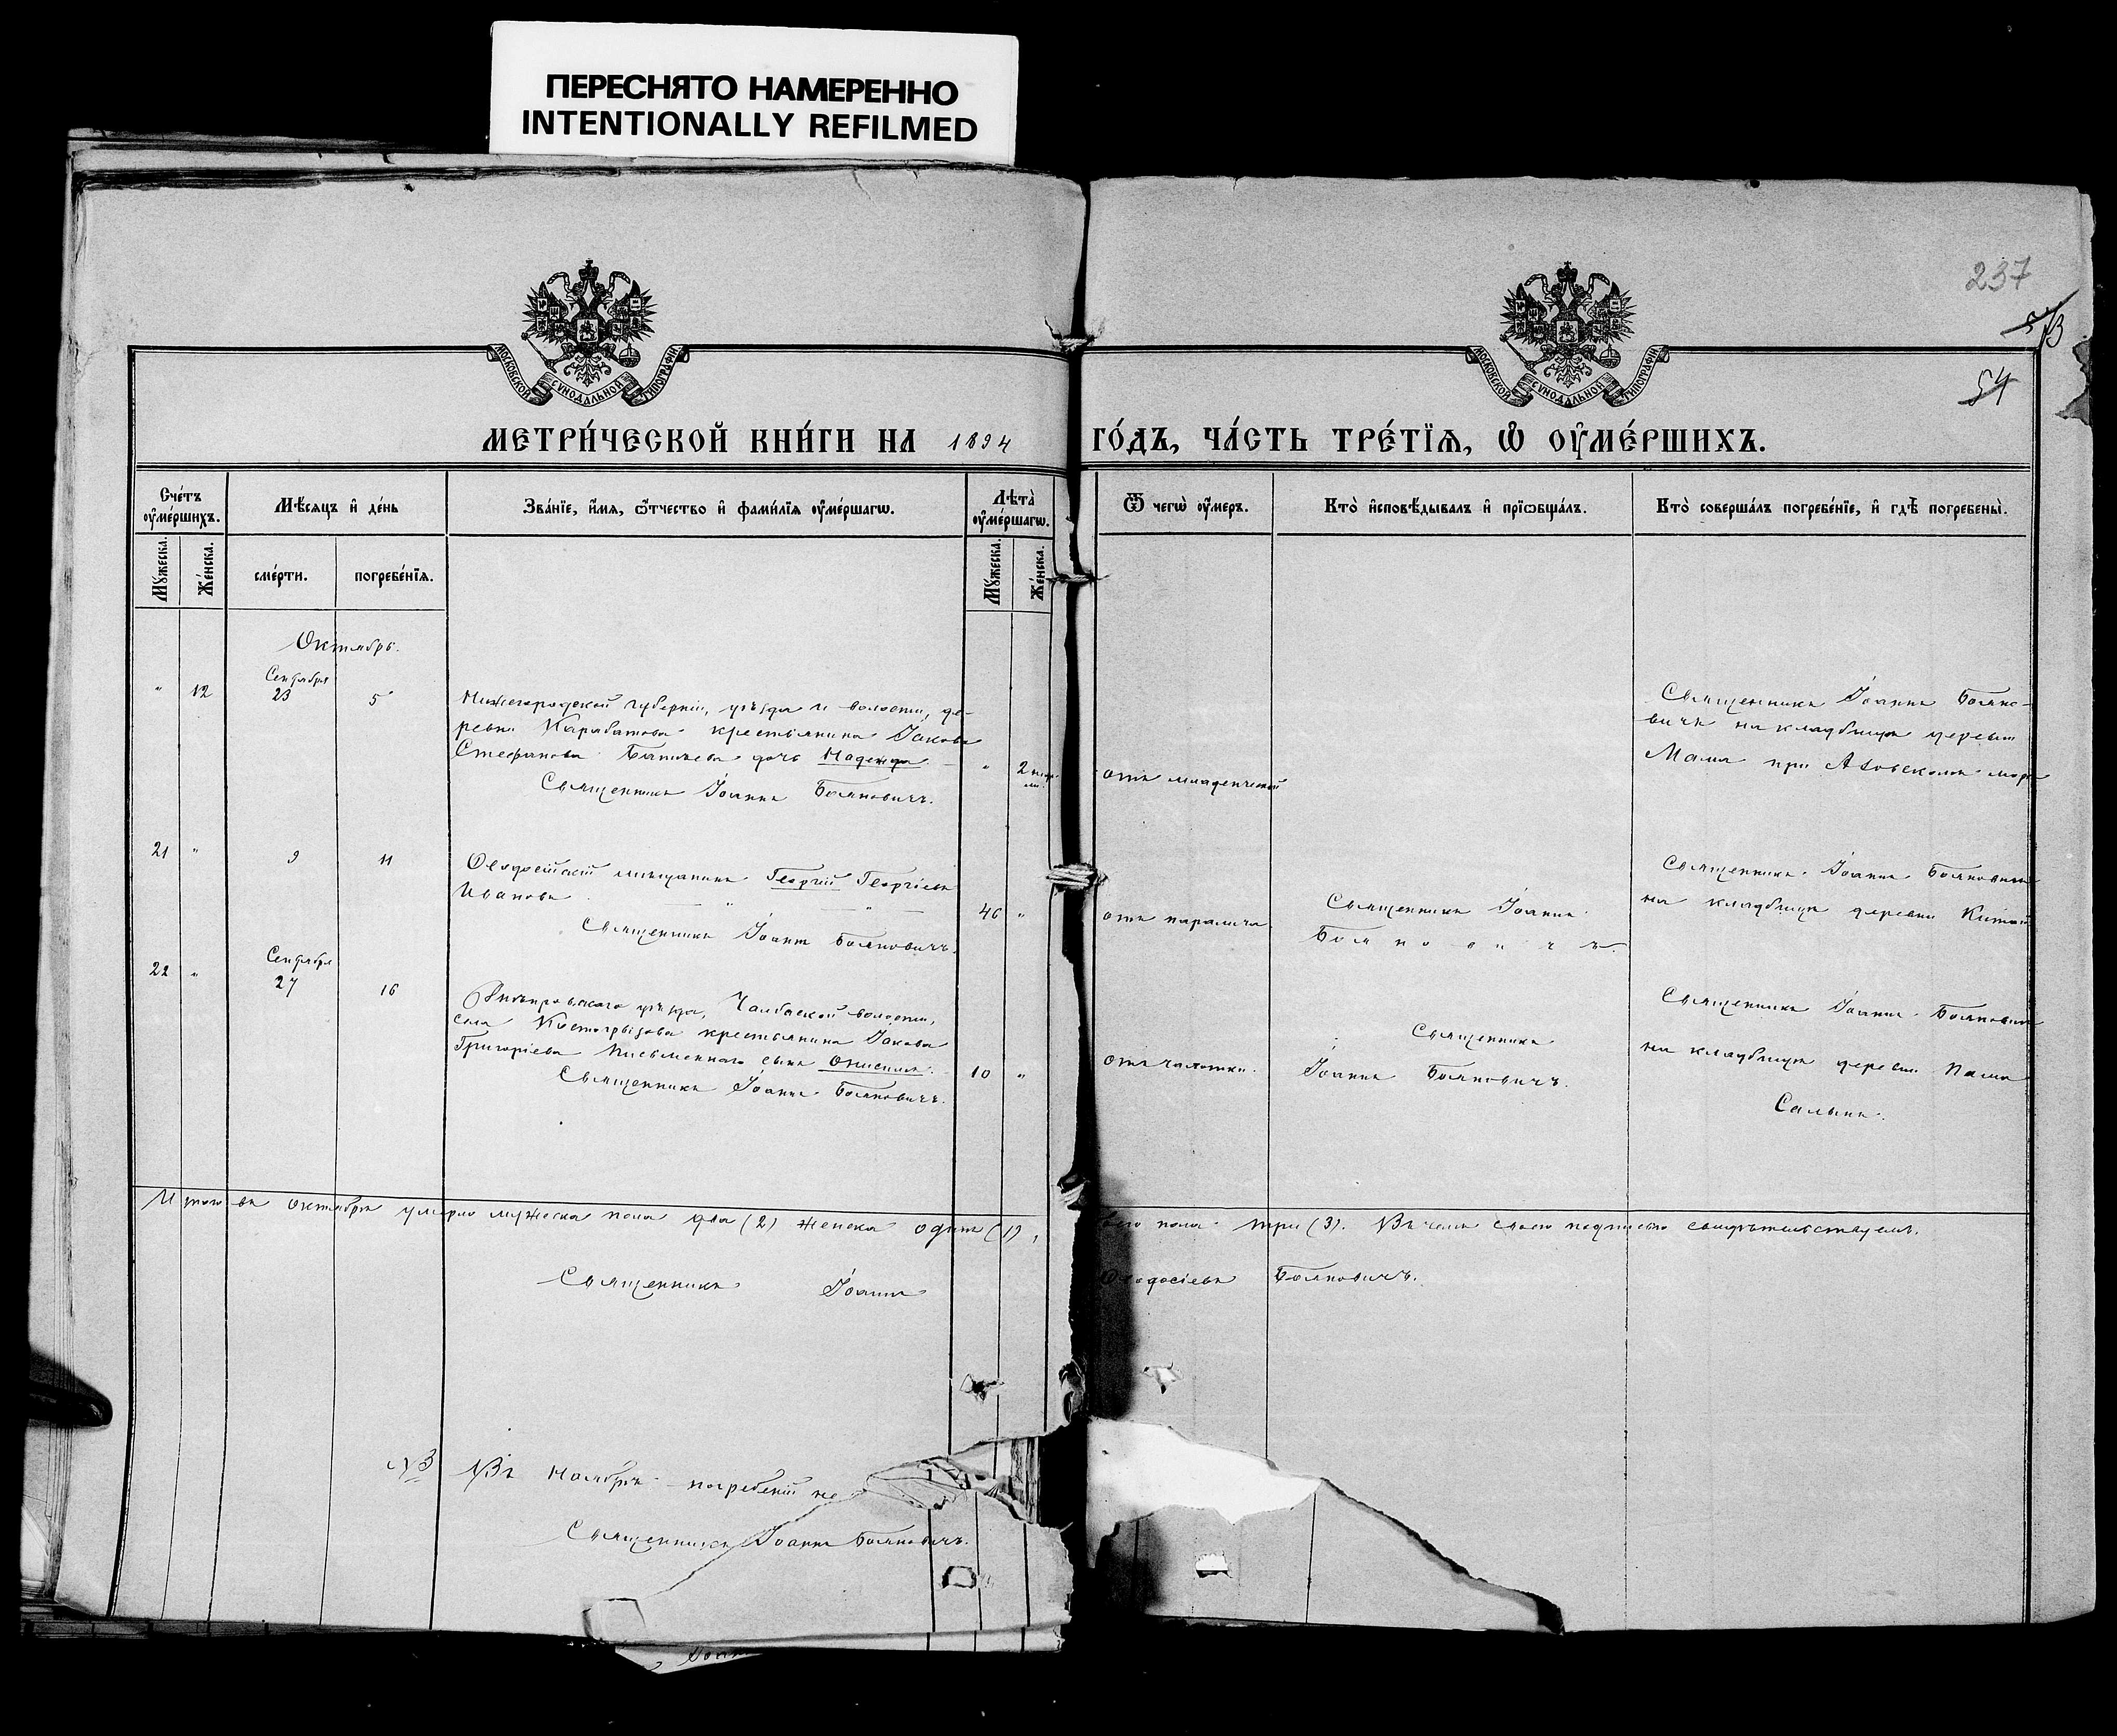 ПЕРЕСНЯТО НАМЕРЕННО
INTENTIONALLY REFILMED
237
54
МОСКОВСКОЙ СѴНОДАЛЬНОЙ ТИПОГРАФІИ
МОСКОВСКОЙ СѴНОДАЛЬНОЙ ТИПОГРАФІИ
МЕТРИ́ЧЕСКОЙ КНИ́ГИ НА 1894 ГО́ДЪ, ЧА́СТЬ ТРЕ́ТЇѦ, Ѡ҆ ОУ҆МЕ́РШИХЪ.
Сче́тъ оу҆ме́ршихъ.
Мѣ́сяцъ и҆ де́нь
Зва́нїе, и҆́мя, ѻ҆́тчество и҆ фами́лїя оу҆ме́ршагѡ.
Лѣта̀ оу҆ме́ршагѡ.
Ѿ чегѡ̀ оу҆́меръ.
Кто̀ и҆сповѣ́дывалъ и҆ прїѡбща́лъ.
Кто̀ соверша́лъ погребе́нїе, и҆ гдѣ̀ погребены̀.
Мꙋ́жеска.
Же́нска.
сме́рти.
погребе́нїя.
Мꙋ́жеска.
Же́нска.
Октябрь.
" 12 Сентября 23 5
Нижегородской губерніи, уѣзда и волости, де-
ревни Карабатова крестьянина Іакова
Стефанова дочь Надежда. "
Священникъ Іоаннъ Бояновичъ.
отъ младенческой
Священникъ Іоаннъ Бояно-
вичъ на кладбищѣ деревни
Мама при Азовскомъ морѣ
21 " 9 11
Ѳеодосійскій мѣщанинъ Георгій Георгіевъ
Ивановъ 46 "
Священникъ Іоаннъ Бояновичъ.
отъ паралича
Священникъ Іоаннъ
Бояновичъ.
Священникъ Іоаннъ Бояновичъ
на кладбищѣ деревни Китай
22 " Сентября 27 16
Днѣпровскаго уѣзда, Чалбаской волости,
села Костогрызова крестьянина Іакова
Григоріева Письменнаго сынъ Онисимъ. 10 "
Священникъ Іоаннъ Бояновичъ.
отъ чахотки.
Священникъ
Іоаннъ Бояновичъ.
Священникъ Іоаннъ Бояновичъ
на кладбищѣ деревни
Салынъ.
Итого въ октябрѣ умерло мужеска пола два (2) женска одна (1), обоего пола три (3). Въ чемъ своею подписью свидѣтельствуемъ.
Священникъ Іоаннъ Ѳеодосіевъ Бояновичъ.
Въ Ноябрѣ погребеній не
Священникъ Іоаннъ Бояновичъ.